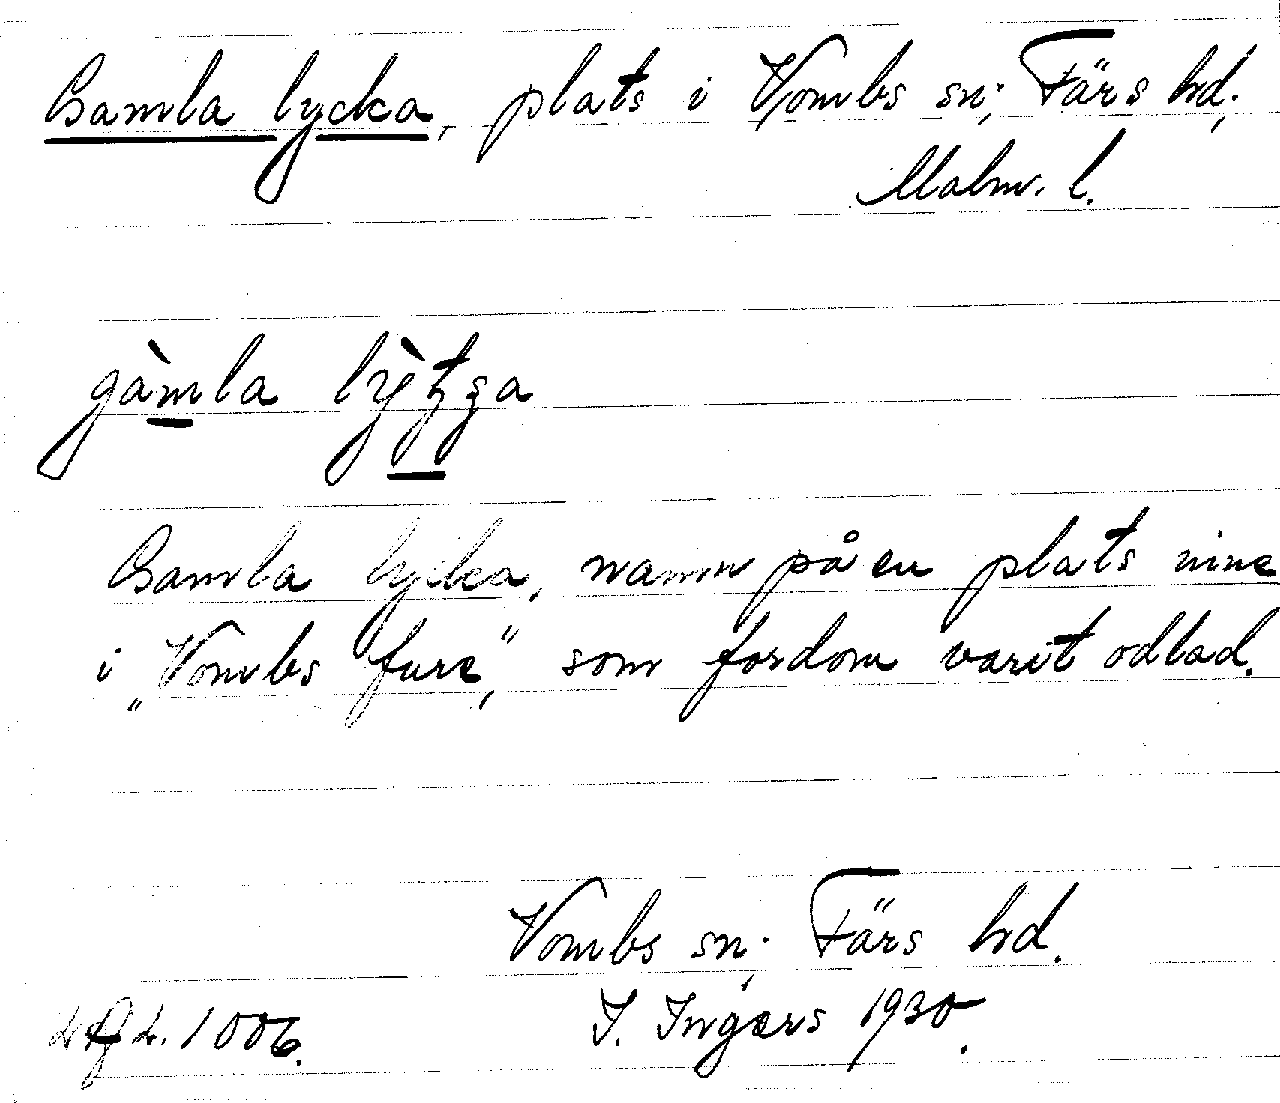 Gamla lycka, plats i Vombs sn; Färs hd,
Malm. l.
gàmla lỳtga
Gamla lycka, namn på en plats inne
i „Vombs fure", som fordom varit odlad.
Vombs sn; Färs hd.
I. Ingers 1930.
1006.